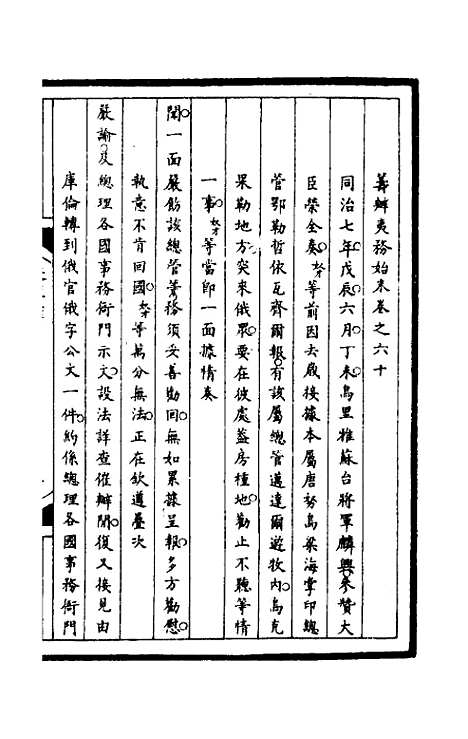 籌辦夷務始末卷之六十
同治七年戊辰六月丁未烏里雅蘇台將軍麟興參贊大
臣榮全奏奴才等前因去歲接據本屬唐努烏梁海掌印總
管鄂勒哲依瓦齊爾報有該屬總管邁達爾遊牧內烏克
果勒地方突來俄眾要在彼處蓋房種地勸止不聽等情
一事奴才等當即一面據情奏
聞一面嚴飭該總管籌務須妥善勸回無如累據呈報多方勸慰
執意不肯回國奴才等萬分無法正在欽遵疊次
嚴諭及總理各國事務衙門示文設法詳查催辦間復又接見由
庫倫轉到俄官俄字公文一件約係總理各國事務衙門